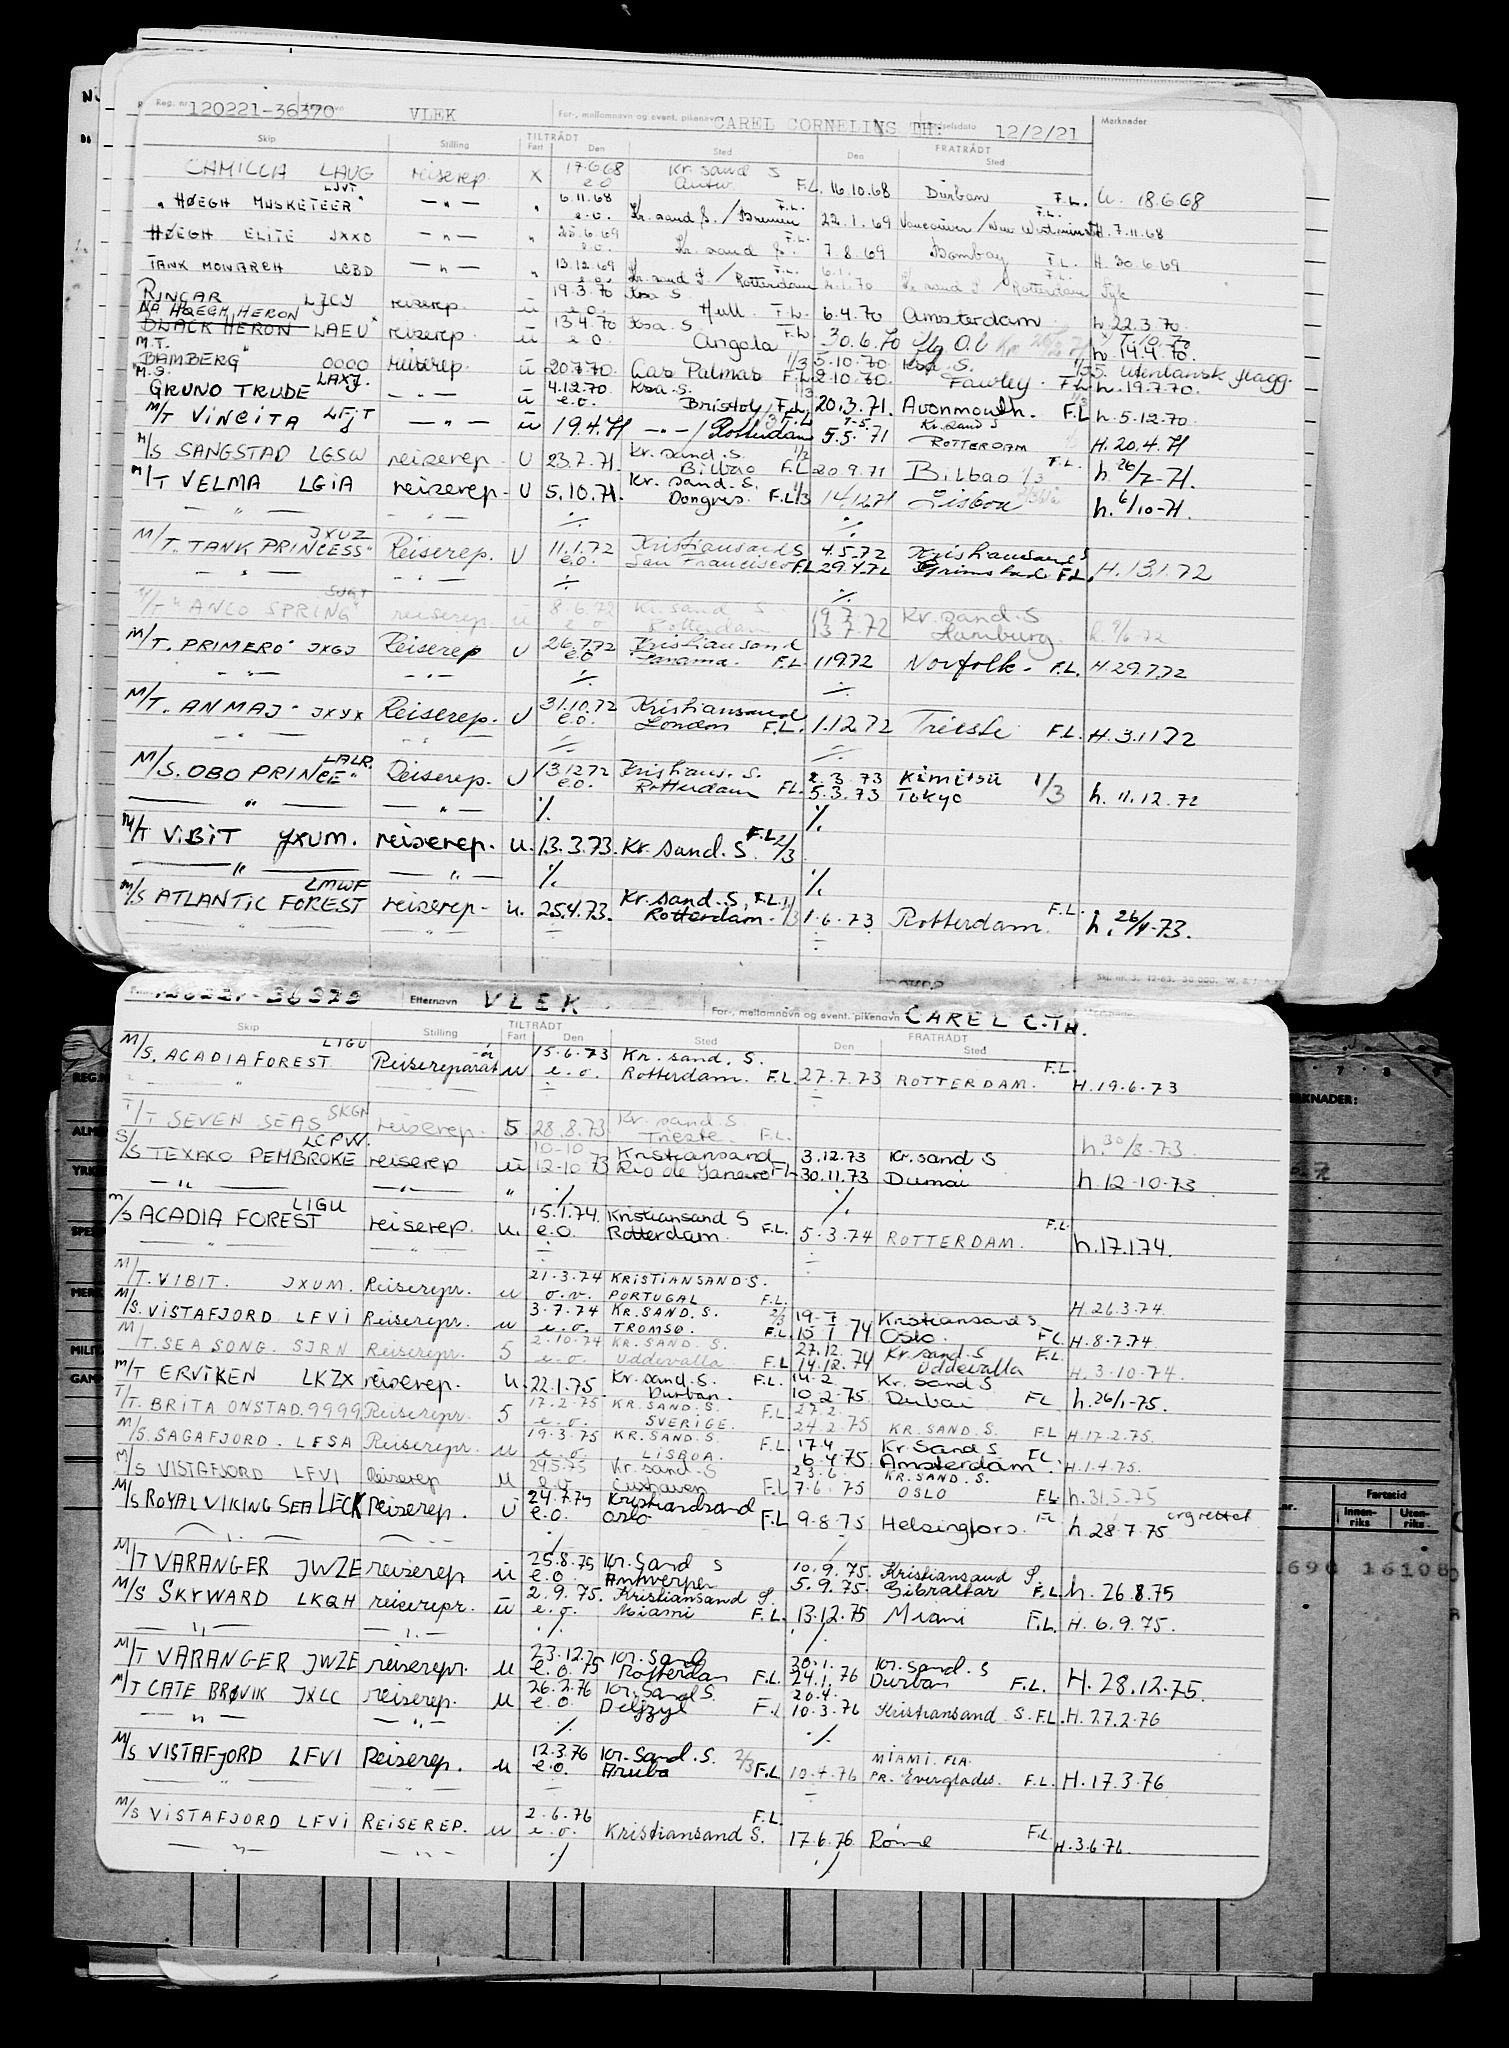 Reg. nr. 120221-36370 VLEK For-, mellomnavn og event. pikenavn CAREL CORNELINS TH: 12/2/21 Merknader
Skip Stilling TILTRÅDT Fart Den Sted Den FRATRÅDT Sted
CAMILLA LAUG reiserep. x 17.6.68 Kr. sand S
e.o Antw. F.L. 16.10.68 Durban F.L. U. 18.6.68
LJVT
"HØEGH MUSKETEER" — " — " 6.11.68 F.L.
e.o. Kr. sand S. / Bremen 22.1.69 Vancouver / New Westminster F.L. H. 7.11.68
HØEGH ELITE JXXO — " — " 25.6.69
e.o. Kr. sand S. F.L. 7.8.69 Bombay F.L. H. 30.6.69
TANK MONARCH LCBD — " — " 13.12.69 F.L.
e.o. Kr. sand S / Rotterdam Kr. sand S. / Rotterdam F.L.
RINGAR LJCY reiserep. u 19.3.70 Ksa S.
e.o. Hull F.L. 6.4.70 Amsterdam h. 22.3.70.
NÅ HØEGH HERON
BLACK HERON LAEU reiserep. u 13.4.70 Ksa. S F.L.
e.o. Angola 30.6.70 h. 14.4.70.
M.T.
"BAMBERG" 0000 reiserep. u 20.7.70 Las Palmas 1/3 F.L. 5.10.70 Ksa. S. 1/3 S. utenlansk flagg.
2.10.70. Fawley. F.L. h. 19.7.70.
M.S.
GRUNO TRUDE LAXJ. — " — u 4.12.70 Ksa. S. 1/3
e.o. Bristol F.L. 20.3.71. Avonmouth. F.L. 1/3 h. 5.12.70.
M/T VINCITA LFJT — " — u 19.4.71 — " — / Rotterdam 1/3 F.L. 7-5. Kr. sand S
5.5.71 ROTTERDAM H. 20.4.71
M/S SANGSTAD LGSW reiserep. U 23.7.71. Kr. sand. S. 1/2
Bilbao F.L 20.9.71 Bilbao 1/3 F.L. h. 26/7-71.
M/T VELMA LGIA reiserep. U 5.10.71. Kr. sand. S.
Dongres. F.L 1/3 14.12.71 Lisboa h. 6/10-71.
— " — — " — ./. ./.
JXUZ
M/T. TANK PRINCESS" Reiserep. U 11.1.72 Kristiansand S 4.5.72 Kristiansand S
e.o. San Francisco F.L 29.4.72 Grimstad F.L. H. 13.1.72
— " — — " — ./. ./.
M/T "ANCO SPRING" reiserep. u 8.6.72 Kr. sand S. 19.7. Kr. sand. S
e.o. Rotterdam 13.7.72 Hamburg. h. 9/6-72
M/T. PRIMERO" JXGJ Reiserep U 26.7.72 Kristiansand
e.o Panama. F.L. 1.9.72 Norfolk. F.L. H. 29.7.72
— " — — " — ./. ./.
M/T. ANMAJ" JXYX Reiserep. U 31.10.72 Kristiansand
e.o. London F.L. 1.12.72 Trieste F.L. H. 3.11.72
— " — — " — ./. ./.
LALR.
M/S. OBO PRINCE" Reiserep. U 13.12.72 Kristians. S. 2.3.73 Kimitsu 1/3
e.o. Rotterdam F.L. 5.3.73 Tokyo h. 11.12.72
— " — — " — ./. ./.
M/T VIBIT JXUM. reiserep. u. 13.3.73. Kr. sand. S. F.L 2/3
— " — — " — ./. ./.
LMWF
M/S ATLANTIC FOREST reiserep. u. 25.4.73. Kr. sand. S, F.L. 1/3
Rotterdam. 1.6.73 Rotterdam. F.L. h. 26/4-73.
Skj. nr. 3. 12-63. 30 000.
120221-36370 Etternavn VLEK For-, mellomnavn og event. pikenavn CAREL C.TH.
Skip Stilling TILTRÅDT Fart Den Sted Den FRATRÅDT Sted
LIGU
M/S. ACADIA FOREST Reisereparatør u 15.6.73 Kr. sand. S.
e.o. Rotterdam. F.L 27.7.73 ROTTERDAM. F.L. H. 19.6.73
T/T SEVEN SEAS SKGN reiserep. 5 28.8.73 Kr. sand. S
Trieste F.L. h. 30/8.73
LCPW.
S/S TEXACO PEMBROKE reiserep u 10-10 Kristiansand 3.12.73 Kr. sand S
12-10 73 Rio de Janeiro F.L 30.11.73 Dumai h. 12-10-73
— " — — " — " ./. ./.
LIGU
M/S ACADIA FOREST reiserep. u. 15.1.74. Kristiansand S
e.o. Rotterdam. F.L. 5.3.74 ROTTERDAM. F.L. h. 17.1.74.
M/T. VIBIT. JXUM. Reiserepr. u 21.3.74 KRISTIANSAND S.
o.v. PORTUGAL F.L. H. 26.3.74
M/S. VISTAFJORD LFVI Reiserepr. u 3.7.74 KR. SAND. S. 2/3 Kristiansand S
e.o. TROMSØ. F.L Oslo. F.L H. 8.7.74
M/T. SEA SONG. SJRN Reiserepr. 5 2.10.74 KR. SAND. S. 27.12. Kr. sand. S F.L.
e.o. Uddevalla F.L 14.12.74 Uddevalla H. 3.10.74
M/T ERVIKEN LKZX reiserep. u. 22.1.75. Kr. sand. S. F.L. 14.2 Kr. sand S
Durban. 10.2.75 Dubai FL h. 26/1-75.
T/T. BRITA ONSTAD. 9999 Reiserepr. 5 17.2.75 KR. SAND. S. F.L 27.2
e.o. SVERIGE. 24.2.75 KR. SAND. S. F.L H. 17.2.75.
M/S. SAGAFJORD. LFSA Reiserepr. u 19.3.75 KR. SAND. S. F.L 17.4 Kr. Sand S
e.o. LISBOA. 6.4.75 Amsterdam F.L. H. 1.4.75.
M/S VISTAFJORD LFVI Reiserep u 29.5.75 Kr. sand. S 23.6. KR. SAND. S.
e.o Cuxhaven F.L 7.6.75 OSLO F.L h. 31.5.75
M/S ROYAL VIKING SEA LECK Reiserep. U 24.7.75 Kristiansand
e.o. Oslo F.L 9.8.75 Helsingfors. FL h. 28.7.75
./. ./.
M/T VARANGER JWZE reiserep u 25.8.75 Kr. Sand S 10.9.75. Kristiansand S.
e.o. Antwerpen 5.9.75. Gibraltar F.L. h. 26.8.75
M/S SKYWARD LKQH reiserepr. u 2.9.75. Kristiansand S.
e.o. Miami F.L. 13.12.75 Miami F.L. H. 6.9.75.
— " — — " — ./. ./.
M/T VARANGER JWZE reiserepr. u 23.12.75 Kr. Sand 30.1. Kr. sand. S
e.o. Rotterdam F.L. 24.1.76 Durban F.L. H. 28.12.75.
M/T CATE BRØVIK JXLC reiserep. u 26.2.76 Kr. Sand S. 20.4.
e.o. Delfzyl F.L 10.3.76 Kristiansand S. F.L. H. 27.2.76
— " — — " — ./. ./.
M/S VISTAFJORD LFVI Reiserep. u 12.3.76 Kr. Sand. S. 2/3 MIAMI. FLA.
e.o. Aruba F.L Pr. Everglades. F.L. H. 17.3.76
M/S VISTAFJORD LFVI REISEREP. u 2.6.76 F.L.
e.o. Kristiansand S. 17.6.76. Rome F.L. H. 3.6.76.
— " — — " — ./. ./.
Fartstid
Innenriks Utenriks
16108